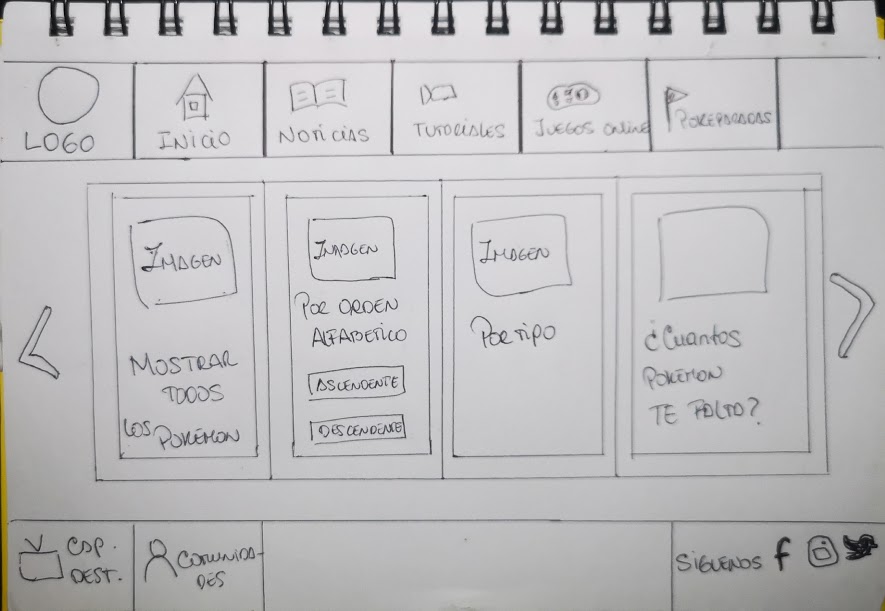 LOGO
INICIO
NOTICIAS
TUTORIALES
JUEGOS ONLINE
POKEPARADAS
IMAGEN
MOSTRAR
TODOS
LOS POKEMON
IMAGEN
POR ORDEN
ALFABETICO
ASCENDENTE
DESCENDENTE
IMAGEN
POR TIPO
¿Cuantos
POKEMON
TE FALTA?
CAP.
DEST.
COMUNIDA-
DES
SIGUENOS f